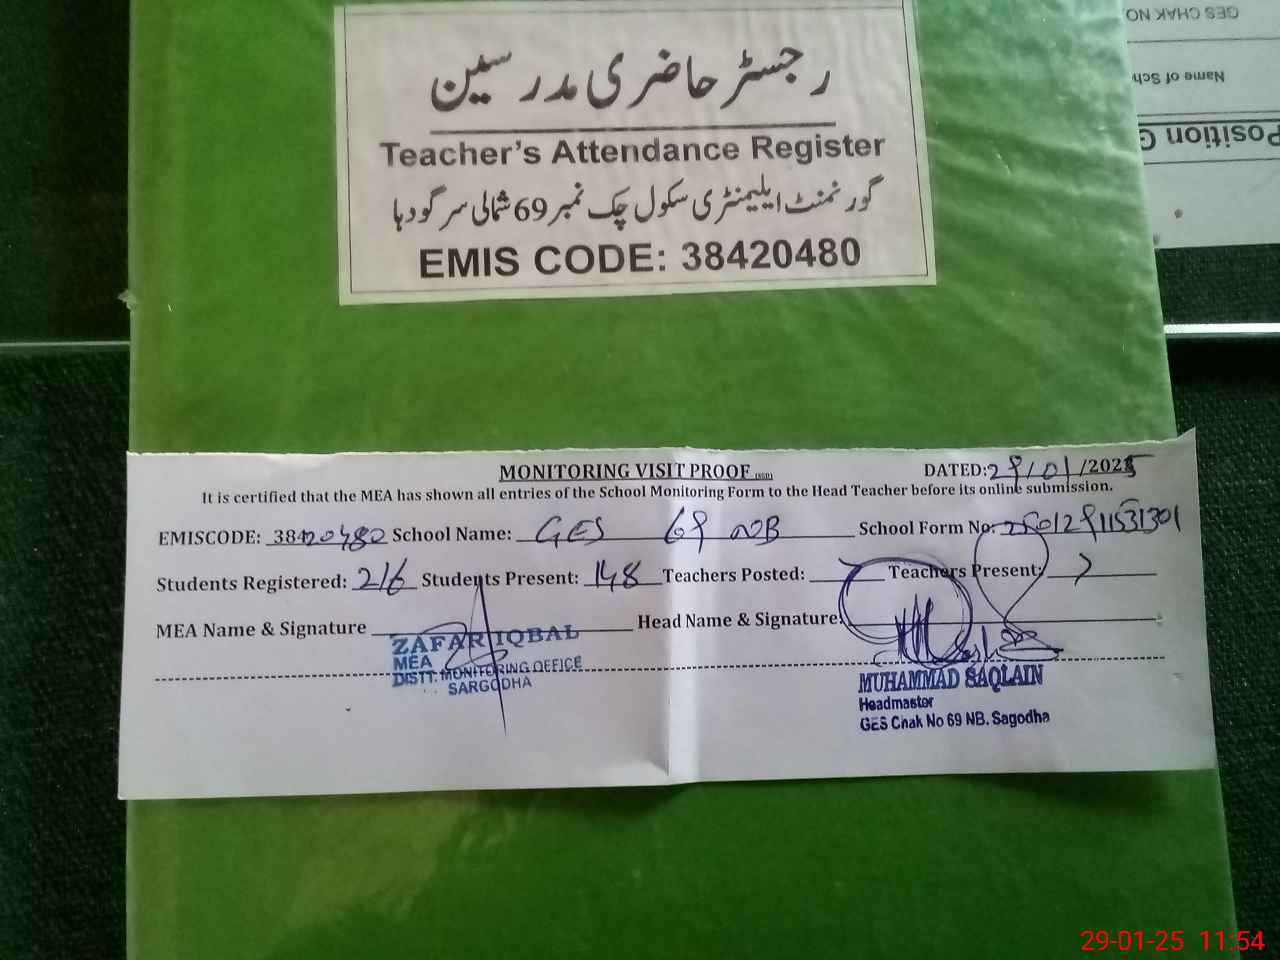 رجسٹر حاضری مدرسین
Teacher's Attendance Register
گورنمنٹ ایلیمنٹری سکول چک نمبر 69 شمالی سرگودہا
EMIS CODE: 38420480
GES CHAK NO
Name of Sch
Position G
MONITORING VISIT PROOF (SGD) DATED: 29/01/2025
It is certified that the MEA has shown all entries of the School Monitoring Form to the Head Teacher before its online submission.
EMISCODE: 38420480 School Name: GES 69 NB School Form No: 25012911531301
Students Registered: 216 Students Present: 148 Teachers Posted: Teachers Present:
MEA Name & Signature Head Name & Signature:
ZAFAR IQBAL
MEA
DISTT. MONITORING OFFICE
SARGODHA
MUHAMMAD SAQLAIN
Headmaster
GES Chak No 69 NB. Sagodha
29-01-25 11:54